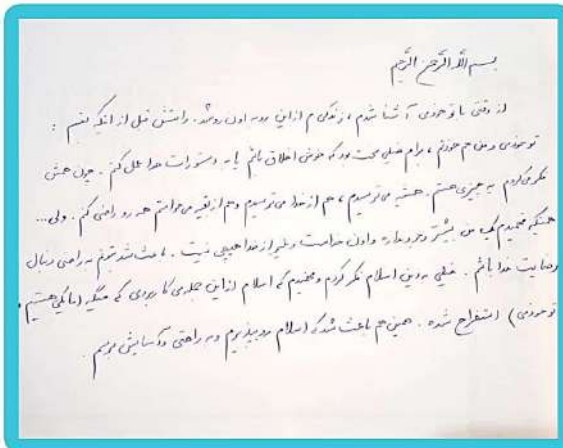 بسم الله الرحمن الرحیم
از وقتی با تو خودمی آشنا شدم، زندگیم از این رو به اون رو شد. راستش قبل از اینکه بفهمم :
تو خودمی و من هم خودتم، برام خیلی سخت بود که خوش اخلاق باشم یا به دستورات خدا عمل کنم. چون همش
فکر می‌کردم یه چیزی هستم. همیشه می‌ترسیدم، هم از خدا می‌ترسیدم و هم از بقیه می‌خواستم همه رو راضی کنم. ولی...
همینکه فهمیدم یک من بیشتر وجود نداره و اون خداست و غیر از خدا هیچی نیست. باعث شد بتونم به راحتی دنبال
رضایت خدا باشم. خیلی به دین اسلام فکر کردم و فهمیدم که اسلام از این جمله‌ی کاربردی که میگه (ما یکی هستیم،
تو خودمی) استخراج شده. همین هم باعث شد که اسلام رو بپذیرم و به راحتی و آسایش برسم.